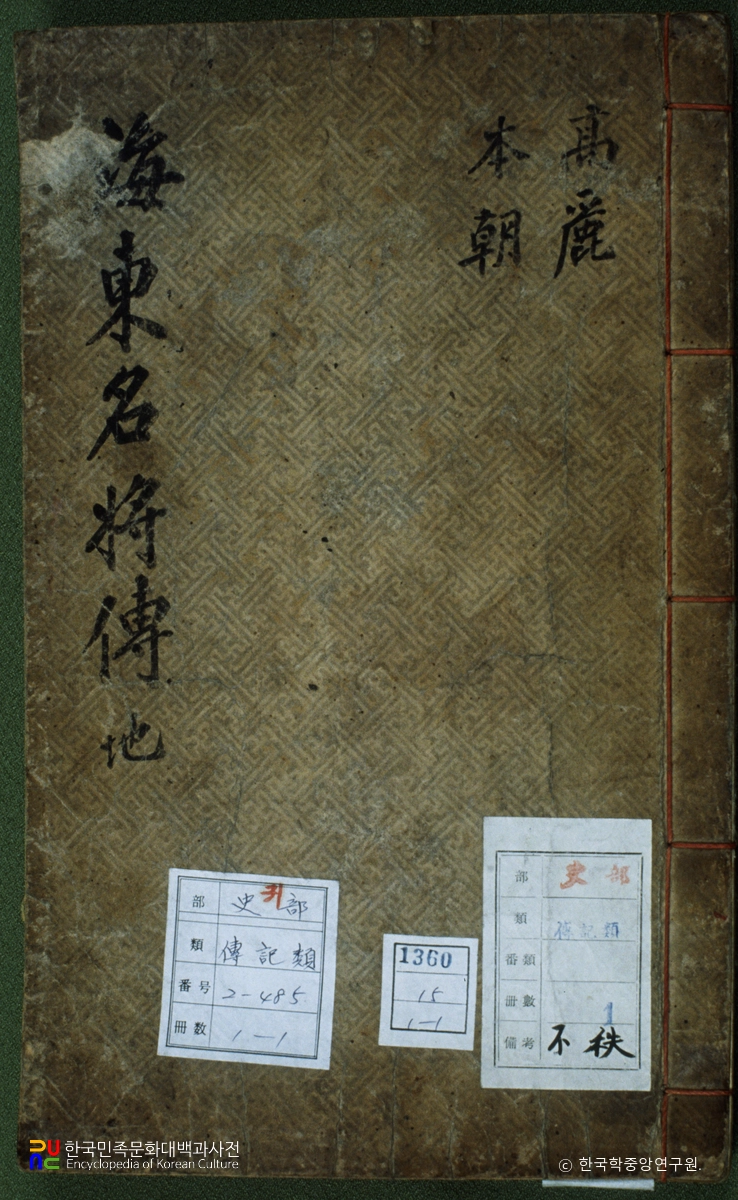 高麗
本朝
海東名將傳 地
部 史部
귀
類 傳記類
番号 2-485
冊数 1-1
1360
15
1-1
部 史部
類 傳記類
番類
冊數 1
備考 不秩
한국민족문화대백과사전
Encyclopedia of Korean Culture
© 한국학중앙연구원.